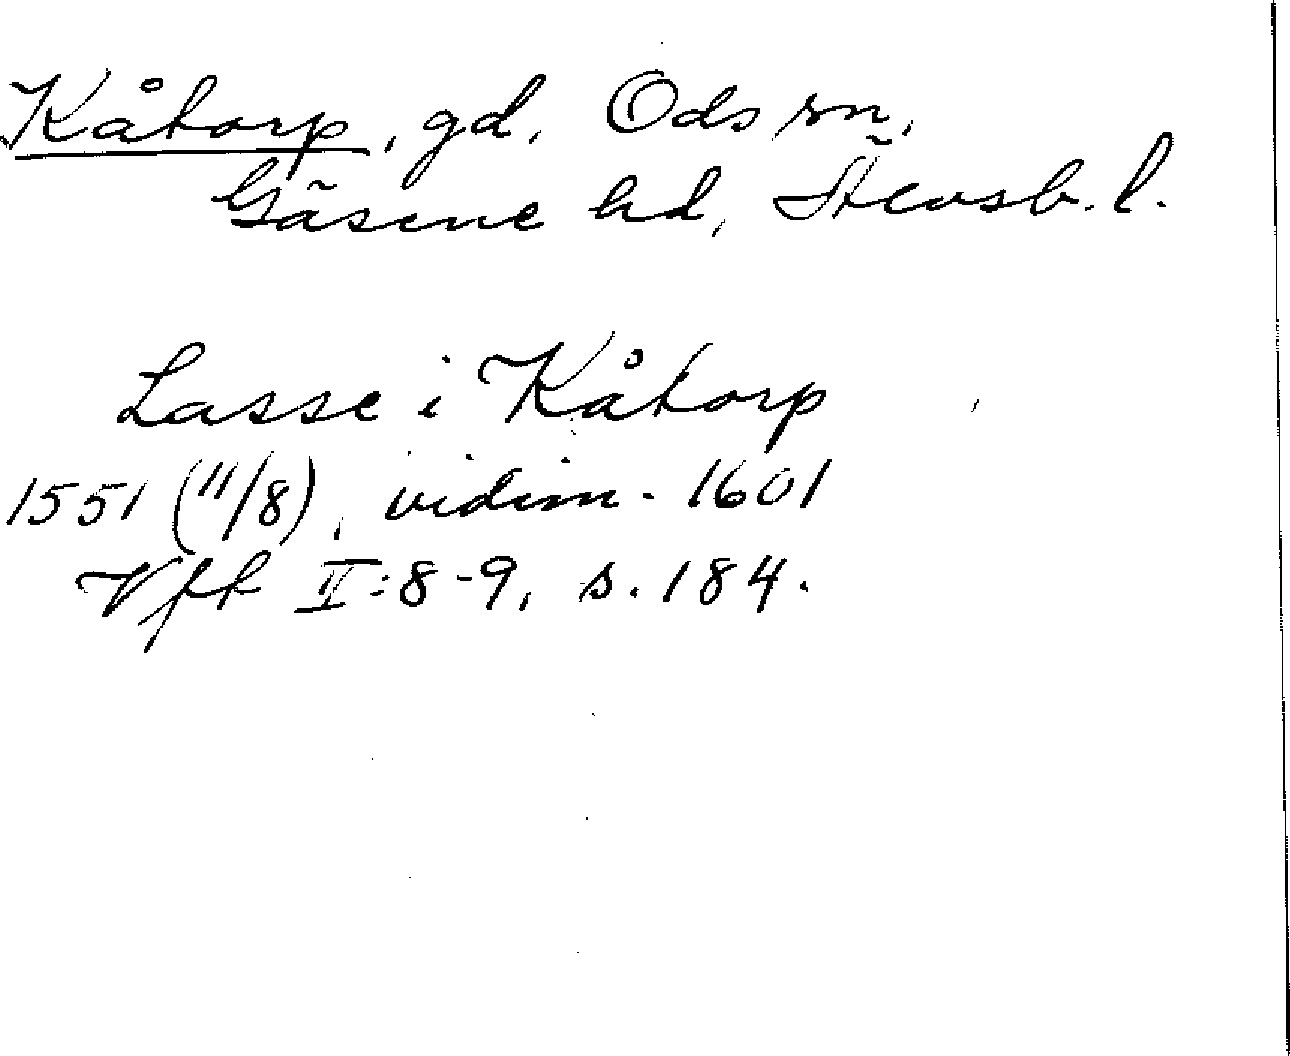 Kåtorp, gd, Ods sn,
Gäsene hd, Älvsb. l.
Lasse i Kåtorp
1551 (11/8), vidim. 1601
Vfh II:8-9, s. 184.